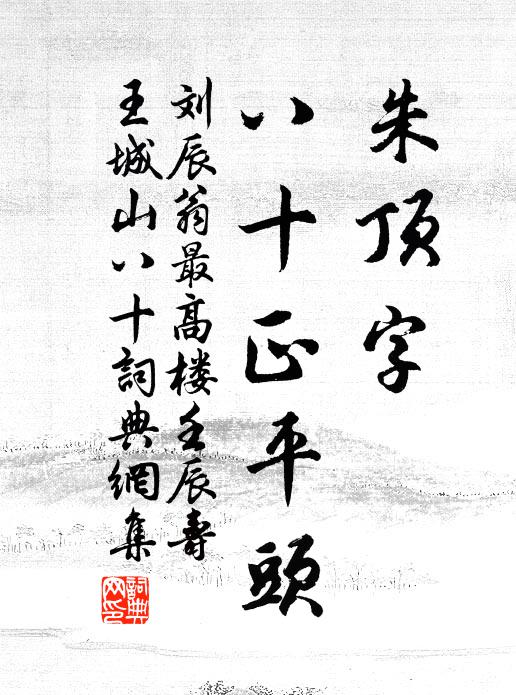 朱顶字
八十正平頭
刘辰翁最高楼壬辰壽
王城山八十詞典網集
詞典
网印